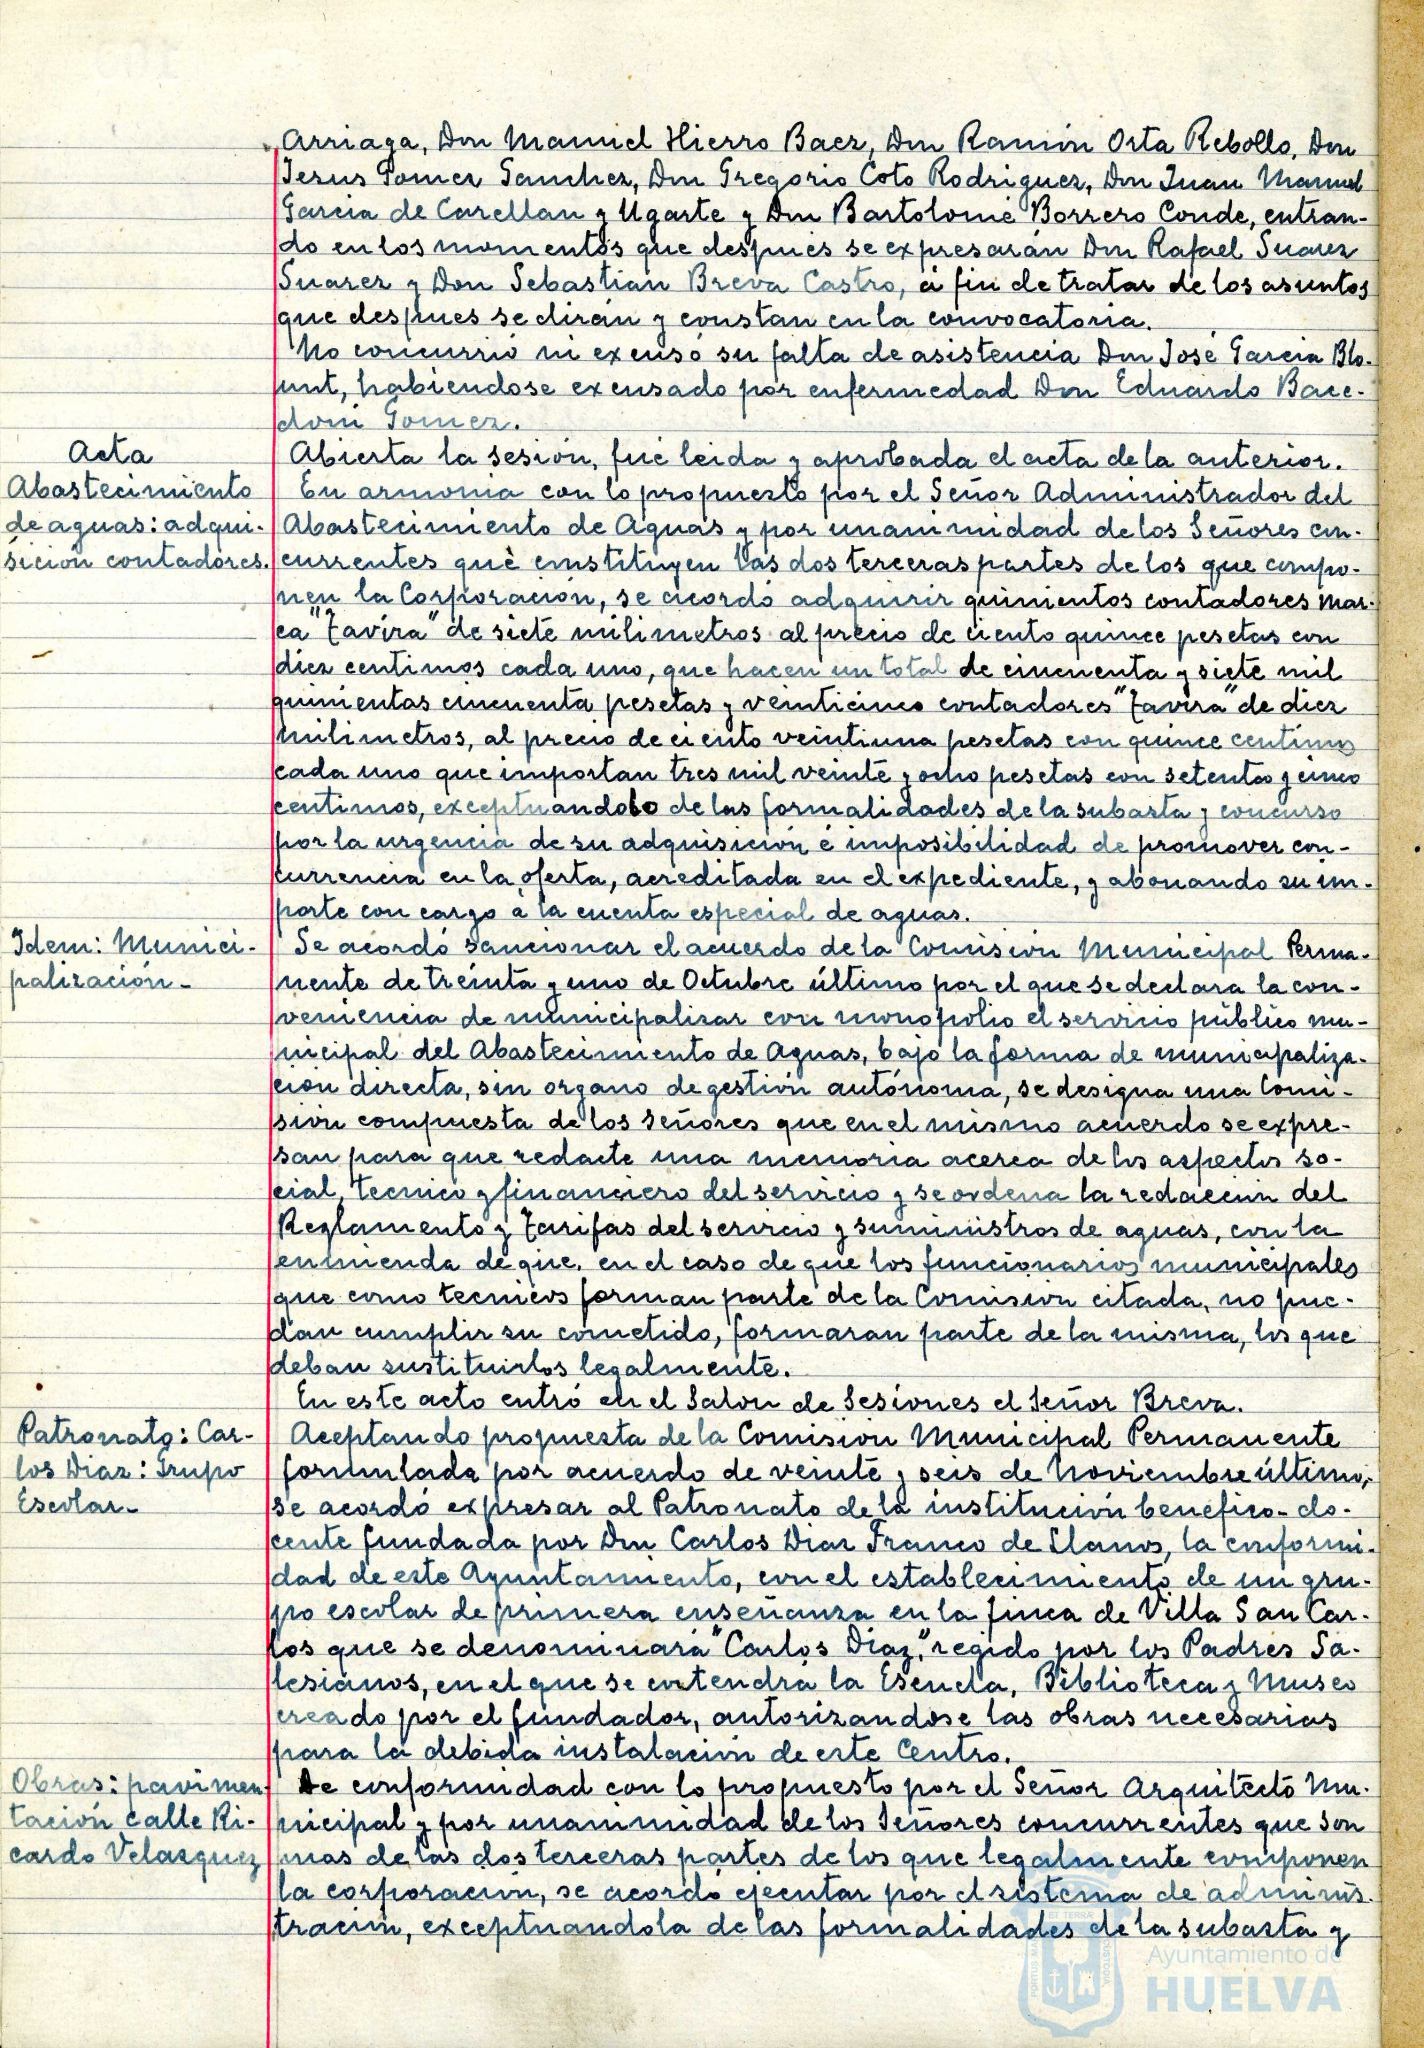 Arriaga, Don Manuel Hierro Baez, Don Ramón Orta Rebollo, Don
Jesus Gomez Sanchez, Don Gregorio Coto Rodriguez, Don Juan Manuel
Garcia de Carellan y Ugarte y Don Bartolomé Borrero Conde, entran-
do en los momentos que después se expresarán Don Rafael Suarez
Suarez y Don Sebastián Breva Castro, á fin de tratar de los asuntos
que despues se dirán y constan en la convocatoria.
No concurrió ni excusó su falta de asistencia Don José Garcia Blo-
unt, habiendose excusado por enfermedad Don Eduardo Bace-
doni Gomez.
Acta
Abierta la sesión, fué leida y aprobada el acta de la anterior.
Abastecimiento
de aguas: adqui-
sición contadores.
En armonia con lo propuesto por el Señor Administrador del
Abastecimiento de Aguas y por unanimidad de los Señores con-
currentes que constituyen las dos terceras partes de los que compo-
nen la Corporación, se acordó adquirir quinientos contadores mar-
ca "Tavira" de siete milimetros al precio de ciento quince pesetas con
diez centimos cada uno, que hacen un total de cincuenta y siete mil
quinientas cincuenta pesetas y veinticinco contadores "Tavira" de diez
milimetros, al precio de ciento veintiuna pesetas con quince centimos
cada uno que importan tres mil veinte y ocho pesetas con setenta y cinco
centimos, exceptuandolo de las formalidades de la subasta y concurso
por la urgencia de su adquisición é imposibilidad de promover con-
currencia en la oferta, acreditada en el expediente, y abonando su im-
porte con cargo á la cuenta especial de aguas.
Idem: Munici-
palización-
Se acordó sancionar el acuerdo de la Comisión Municipal Perma-
nente de treinta y uno de Octubre último por el que se declara la con-
veniencia de municipalizar con monopolio el servicio público mu-
nicipal del Abastecimiento de Aguas, bajo la forma de municipaliza-
ción directa, sin organo de gestión autónoma, se designa una Comi-
sión compuesta de los señores que en el mismo acuerdo se expre-
san para que redacte una memoria acerca de los aspectos so-
cial, tecnico y financiero del servicio y se ordena la redacción del
Reglamento y Tarifas del servicio y suministros de aguas, con la
enmienda de que, en el caso de que los funcionarios municipales
que como tecnicos forman parte de la Comisión citada, no pue-
dan cumplir su cometido, formaran parte de la misma, los que
deban sustituirlos legalmente.
En este acto entró en el Salon de Sesiones el Señor Breva.
Patronato: Car-
los Diaz: Grupo
Escolar-
Aceptando propuesta de la Comisión Municipal Permanente
formulada por acuerdo de veinte y seis de Noviembre último,
se acordó expresar al Patronato de la institución benefico-do-
cente fundada por Don Carlos Diaz Franco de Llanos, la conformi-
dad de este Ayuntamiento, con el establecimiento de un gru-
po escolar de primera enseñanza en la finca de Villa San Car-
los que se denominará "Carlos Díaz," regido por los Padres Sa-
lesianos, en el que se entendrá la Escuela, Biblioteca y Museo
creado por el fundador, autorizandose las obras necesarias
para la debida instalación de este Centro.
Obras: pavimen
tación calle Ri-
cardo Velasquez
De conformidad con lo propuesto por el Señor Arquitecto Mu-
nicipal y por unanimidad de los Señores concurrentes que son
mas de las dos terceras partes de los que legalmente componen
la corporación, se acordó ejecutar por el sistema de adminis-
tración, exceptuandola de las formalidades de la subasta y
Ayuntamiento de
HUELVA